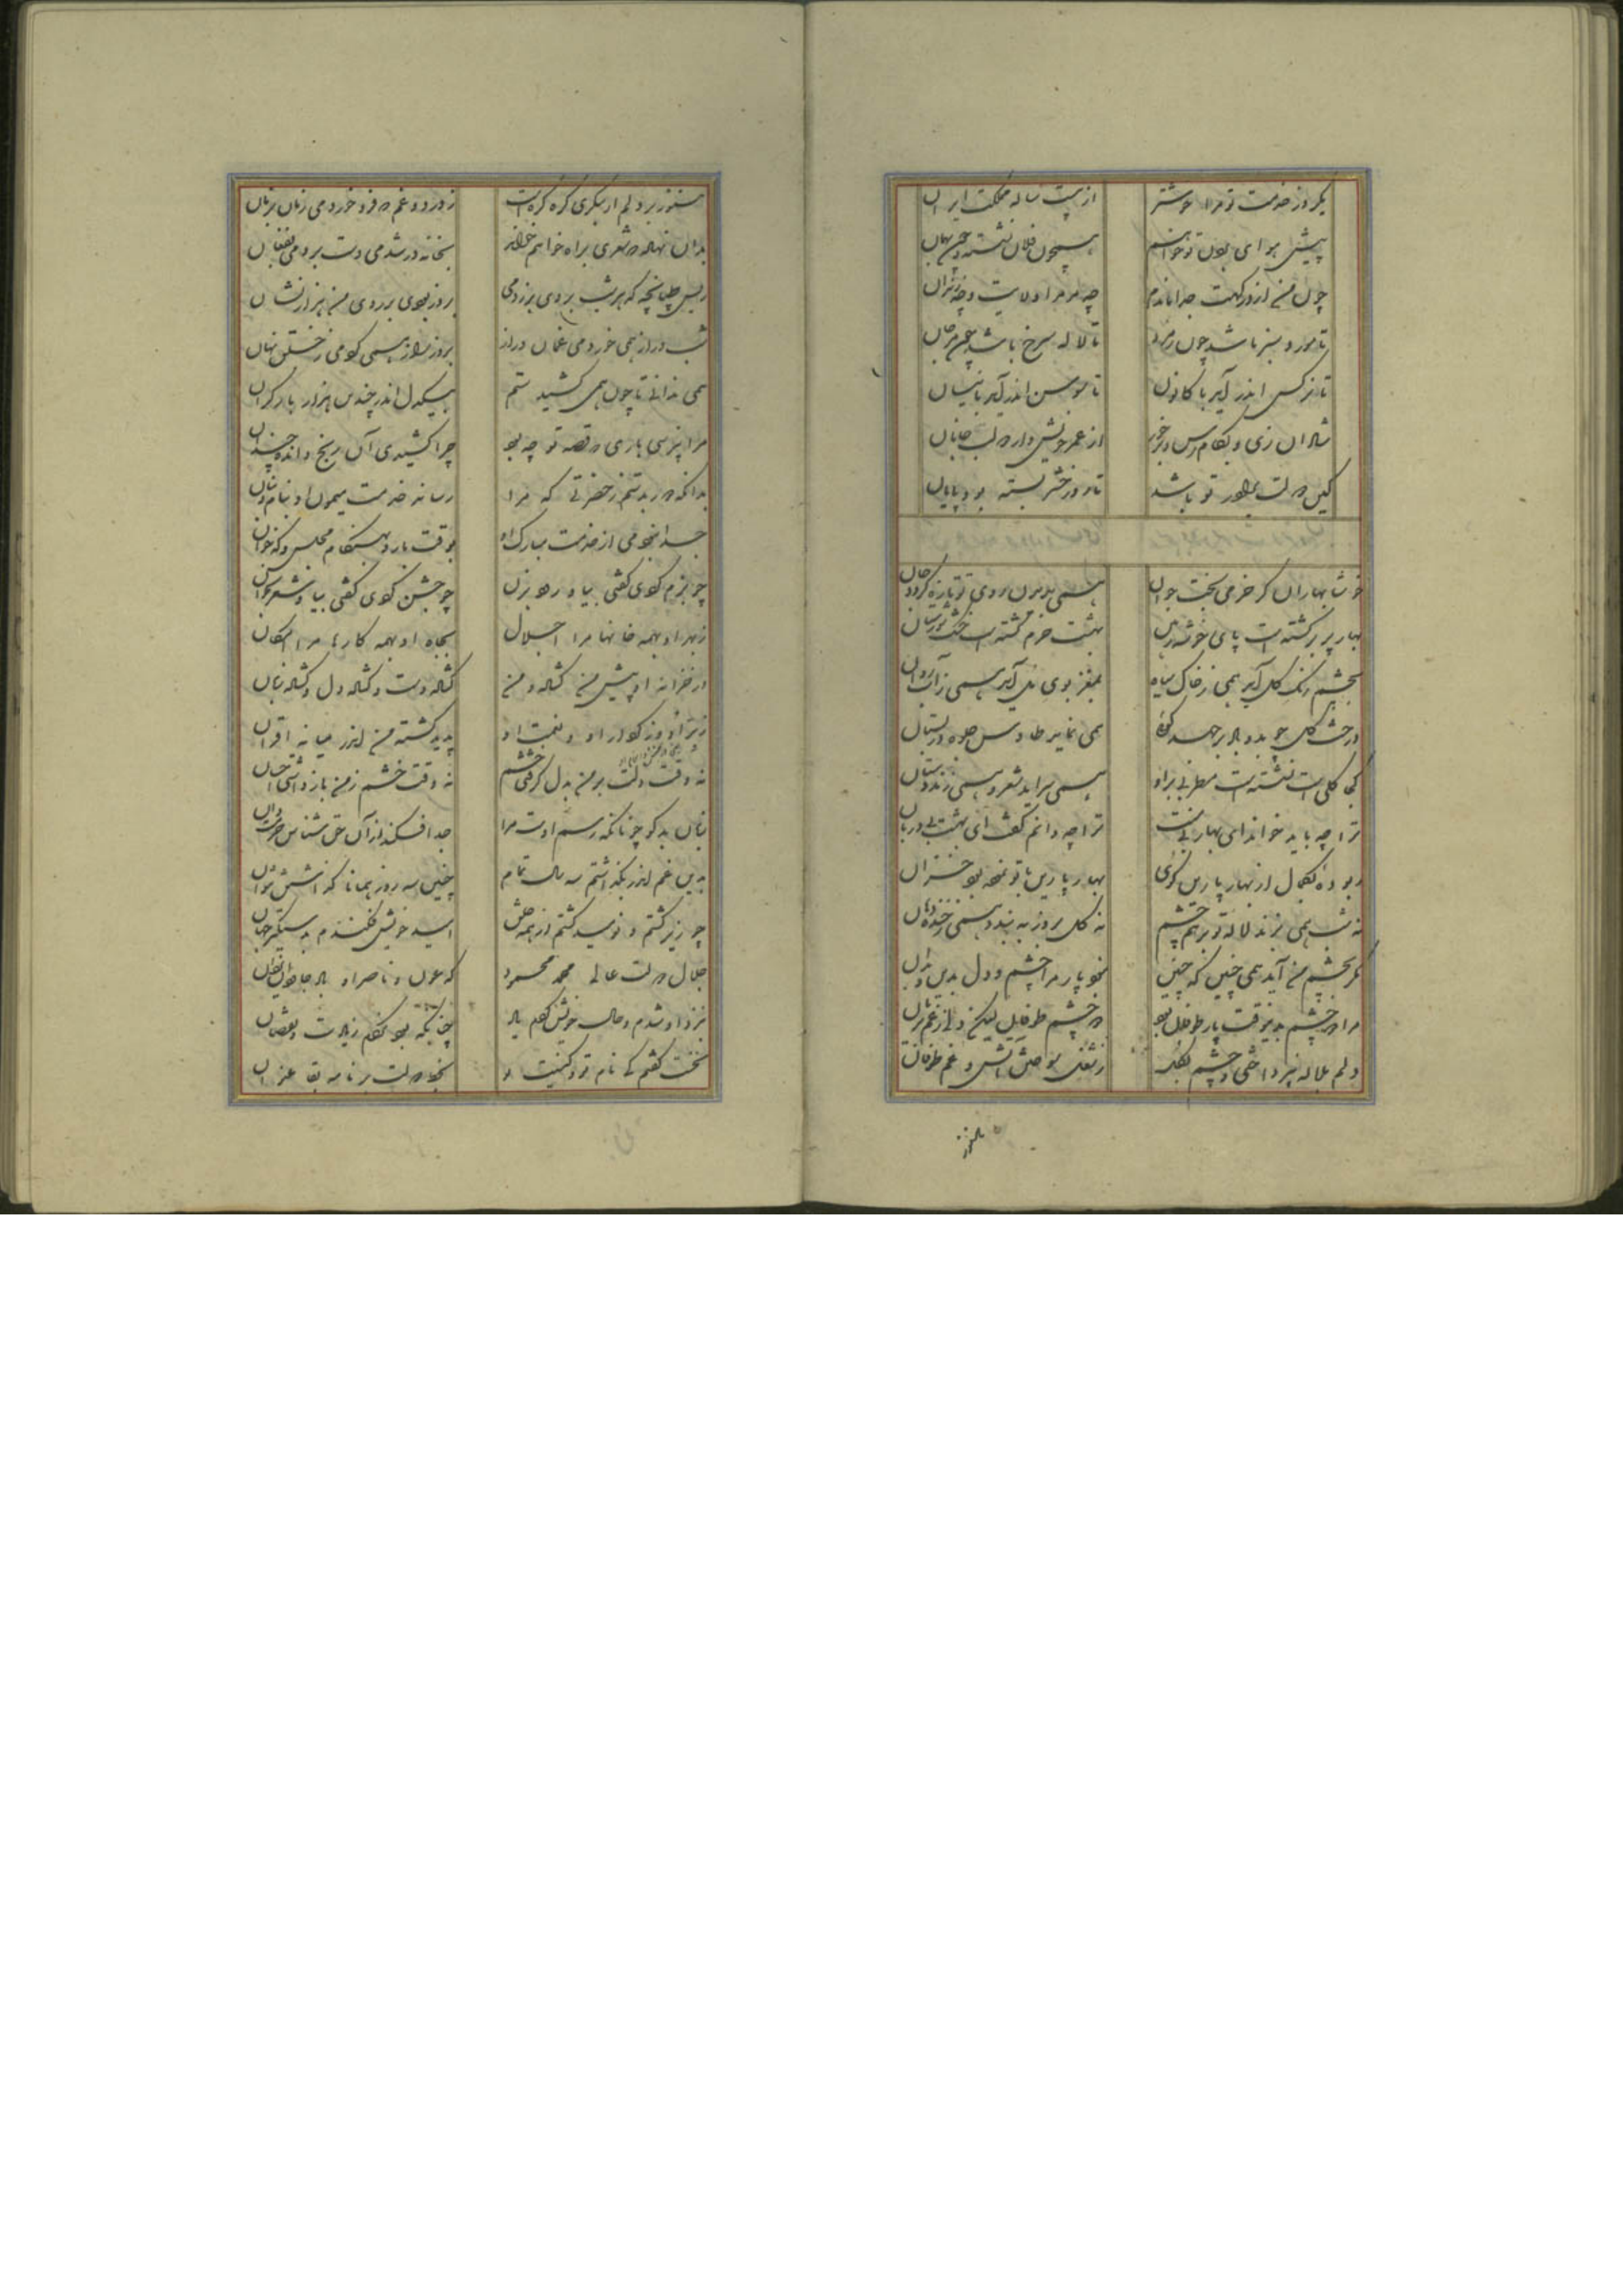 یکروز خدمت تو مرا خوشتر از بیست ساله مملکت ایران
پیش هوای بودن نتوانم همچون فلان نشسته و بهمان
چون من از درکهت جدا ماندم چه مر مرا ولایت و چه زندان
تا مورد سبز باشد چون زمرد تا لاله سرخ باشد چون مرجان
تا نرکس اندر آید با کانون تا سوسن اندر آید با نیسان
شادان زی و بکام رس و برخور از عمر خویش و از دو لب جانان
کین دولت تو باشد تا روز حشر بسته بود پایان
خوشا بهاران کز خرمی و بخت جوان همی بدیدن روی تو تازه کردد جان
بهار پر بر کشته است پای بهشت خرم کشته است خشک شورستان
بچشم رنک کل آید همی ز خاک سیاه بمغز بوی مل آید همی ز آب روان
درخت کل چو بدو باد برجهد کوئی همی نماید طاوس جلوه در بستان
کجا کلی است نشسته است مطربی بر او همی سراید شعر و همی زند دستان
ترا چه باید خواند ای بهار بی منت ترا چه دانم کفت ای بهشت بی دربان
ربوده بجمال از بهار پارین کوی بهار پارین با تو نموده بود خزان
نه شب همی بزند لاله تو بر هم چشم نه کل بروز به بندد همی ز خنده دهان
مکر بچشم من آید همی چنین که چنین نبود پار مرا چشم و دل بدین و بدان
مرا دو چشم بدین وقت پار طوفان بود دو چشم طوفان لیکن دلی ز غم بریان
دلم بلاله نپرداختی و چشم بکل ز شغل سوختن آتش و غم طوفان
هنوز
هنوز بر دلم ار بنکری کره کره است ز درد و غم که فرو خوردمی زمان بزمان
بدان نهاد که شعری براه خواهم خواند بخانه در شدمی دست بردمی بفغان
ز بس طپانچه که هر شب بروی بر زدمی بروز بودی بر روی من هزار نشان
شب دراز همی خوردمی غمان دراز بروز راز همی کردمی ز خلق نهان
همی ندانی تا چون همی کشید ستم بیک دل اندر چندین هزار بار کران
مرا بپرسی باری که قصه تو چه بود چرا کشیدی آن رنج و انده چندان
بدانکه دور بدستم ز حضرتی که مرا رسانه خدمت میمون او بنام و بنان
جدا نبودمی از خدمت مبارک او بوقت بار و بهنکام مجلس و که خوان
چو بزم کردی کفتی بیا و رود بزن چو جشن کردی کفتی بیا و شعر بخوان
ز بر او بهمه خانها مرا اجلال بجاه او بهمه کارها مرا امکان
در خزانه او پیش من کشاده و من کشاده دست و کشاده دل و کشاده زبان
ز بر او و ز کردار او و نعمت او پدید کشته من اندر میانه اقران
نه وقت دولت بر من بدل کرفتی خشم نه وقت خشم ز من باز داشتی احسان
جدا فکند از آن حق شناس حرمت دان زبان بدکو چونانکه رسم اوست مرا
بدین غم اندر بکذاشتم سه سال تمام چنین سه روز همانا کذاشتن نتوان
چو زیر کشتم و نومید کشتم از همه خلق امید خویش فکندم بدستکیر جهان
جلال دولت عالی محمد محمود که عون و ناصر او باد جاودان یزدان
بنزد او شدم و حال خویش کفتم باد چنانکه بود نکردم زیادت و نقصان
نخست کفتم کای نام تو و کنیت تو بجاه و دولت بر نامه بقا عنوان